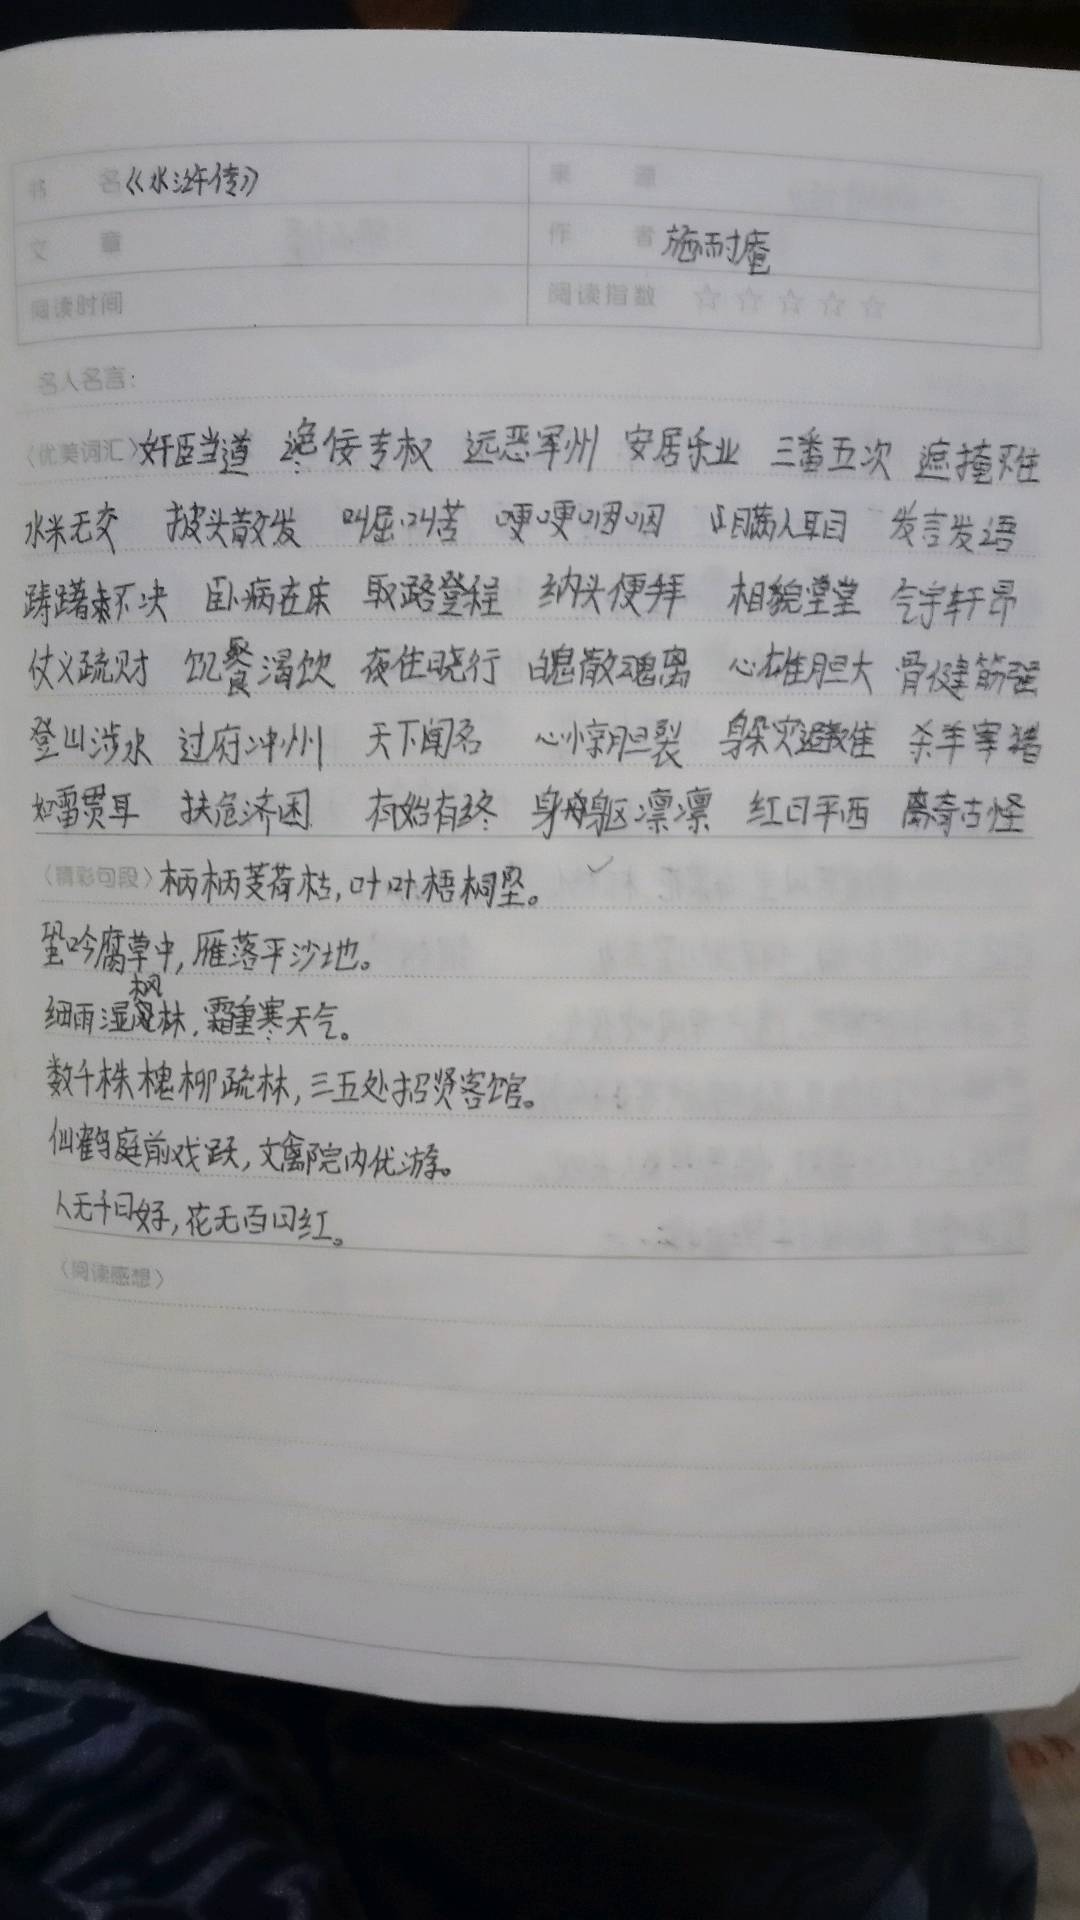 书 名 《水浒传》 来 源
文 章 作 者 施耐庵
阅读时间 阅读指数 ☆ ☆ ☆ ☆ ☆
名人名言：
〈优美词汇〉奸臣当道 谗佞专权 远恶军州 安居乐业 三番五次 遮掩不住
水米无交 披头散发 叫屈叫苦 哽哽咽咽 瞒人耳目 发言发语
踌躇不决 卧病在床 取路登程 纳头便拜 相貌堂堂 气宇轩昂
仗义疏财 饥餐渴饮 夜住晓行 魄散魂离 心雄胆大 骨健筋强
登山涉水 过府冲州 天下闻名 心惊胆裂 躲灾避难 杀羊宰猪
如雷贯耳 扶危济困 有始有终 身躯凛凛 红日平西 离奇古怪
〈精彩句段〉柄柄芰荷枯，叶叶梧桐坠。
蛩吟腐草中，雁落平沙地。
细雨湿枫林，霜重寒天气。
数千株槐柳疏林，三五处招贤客馆。
仙鹤庭前戏跃，文禽院内优游。
人无千日好，花无百日红。
〈阅读感想〉